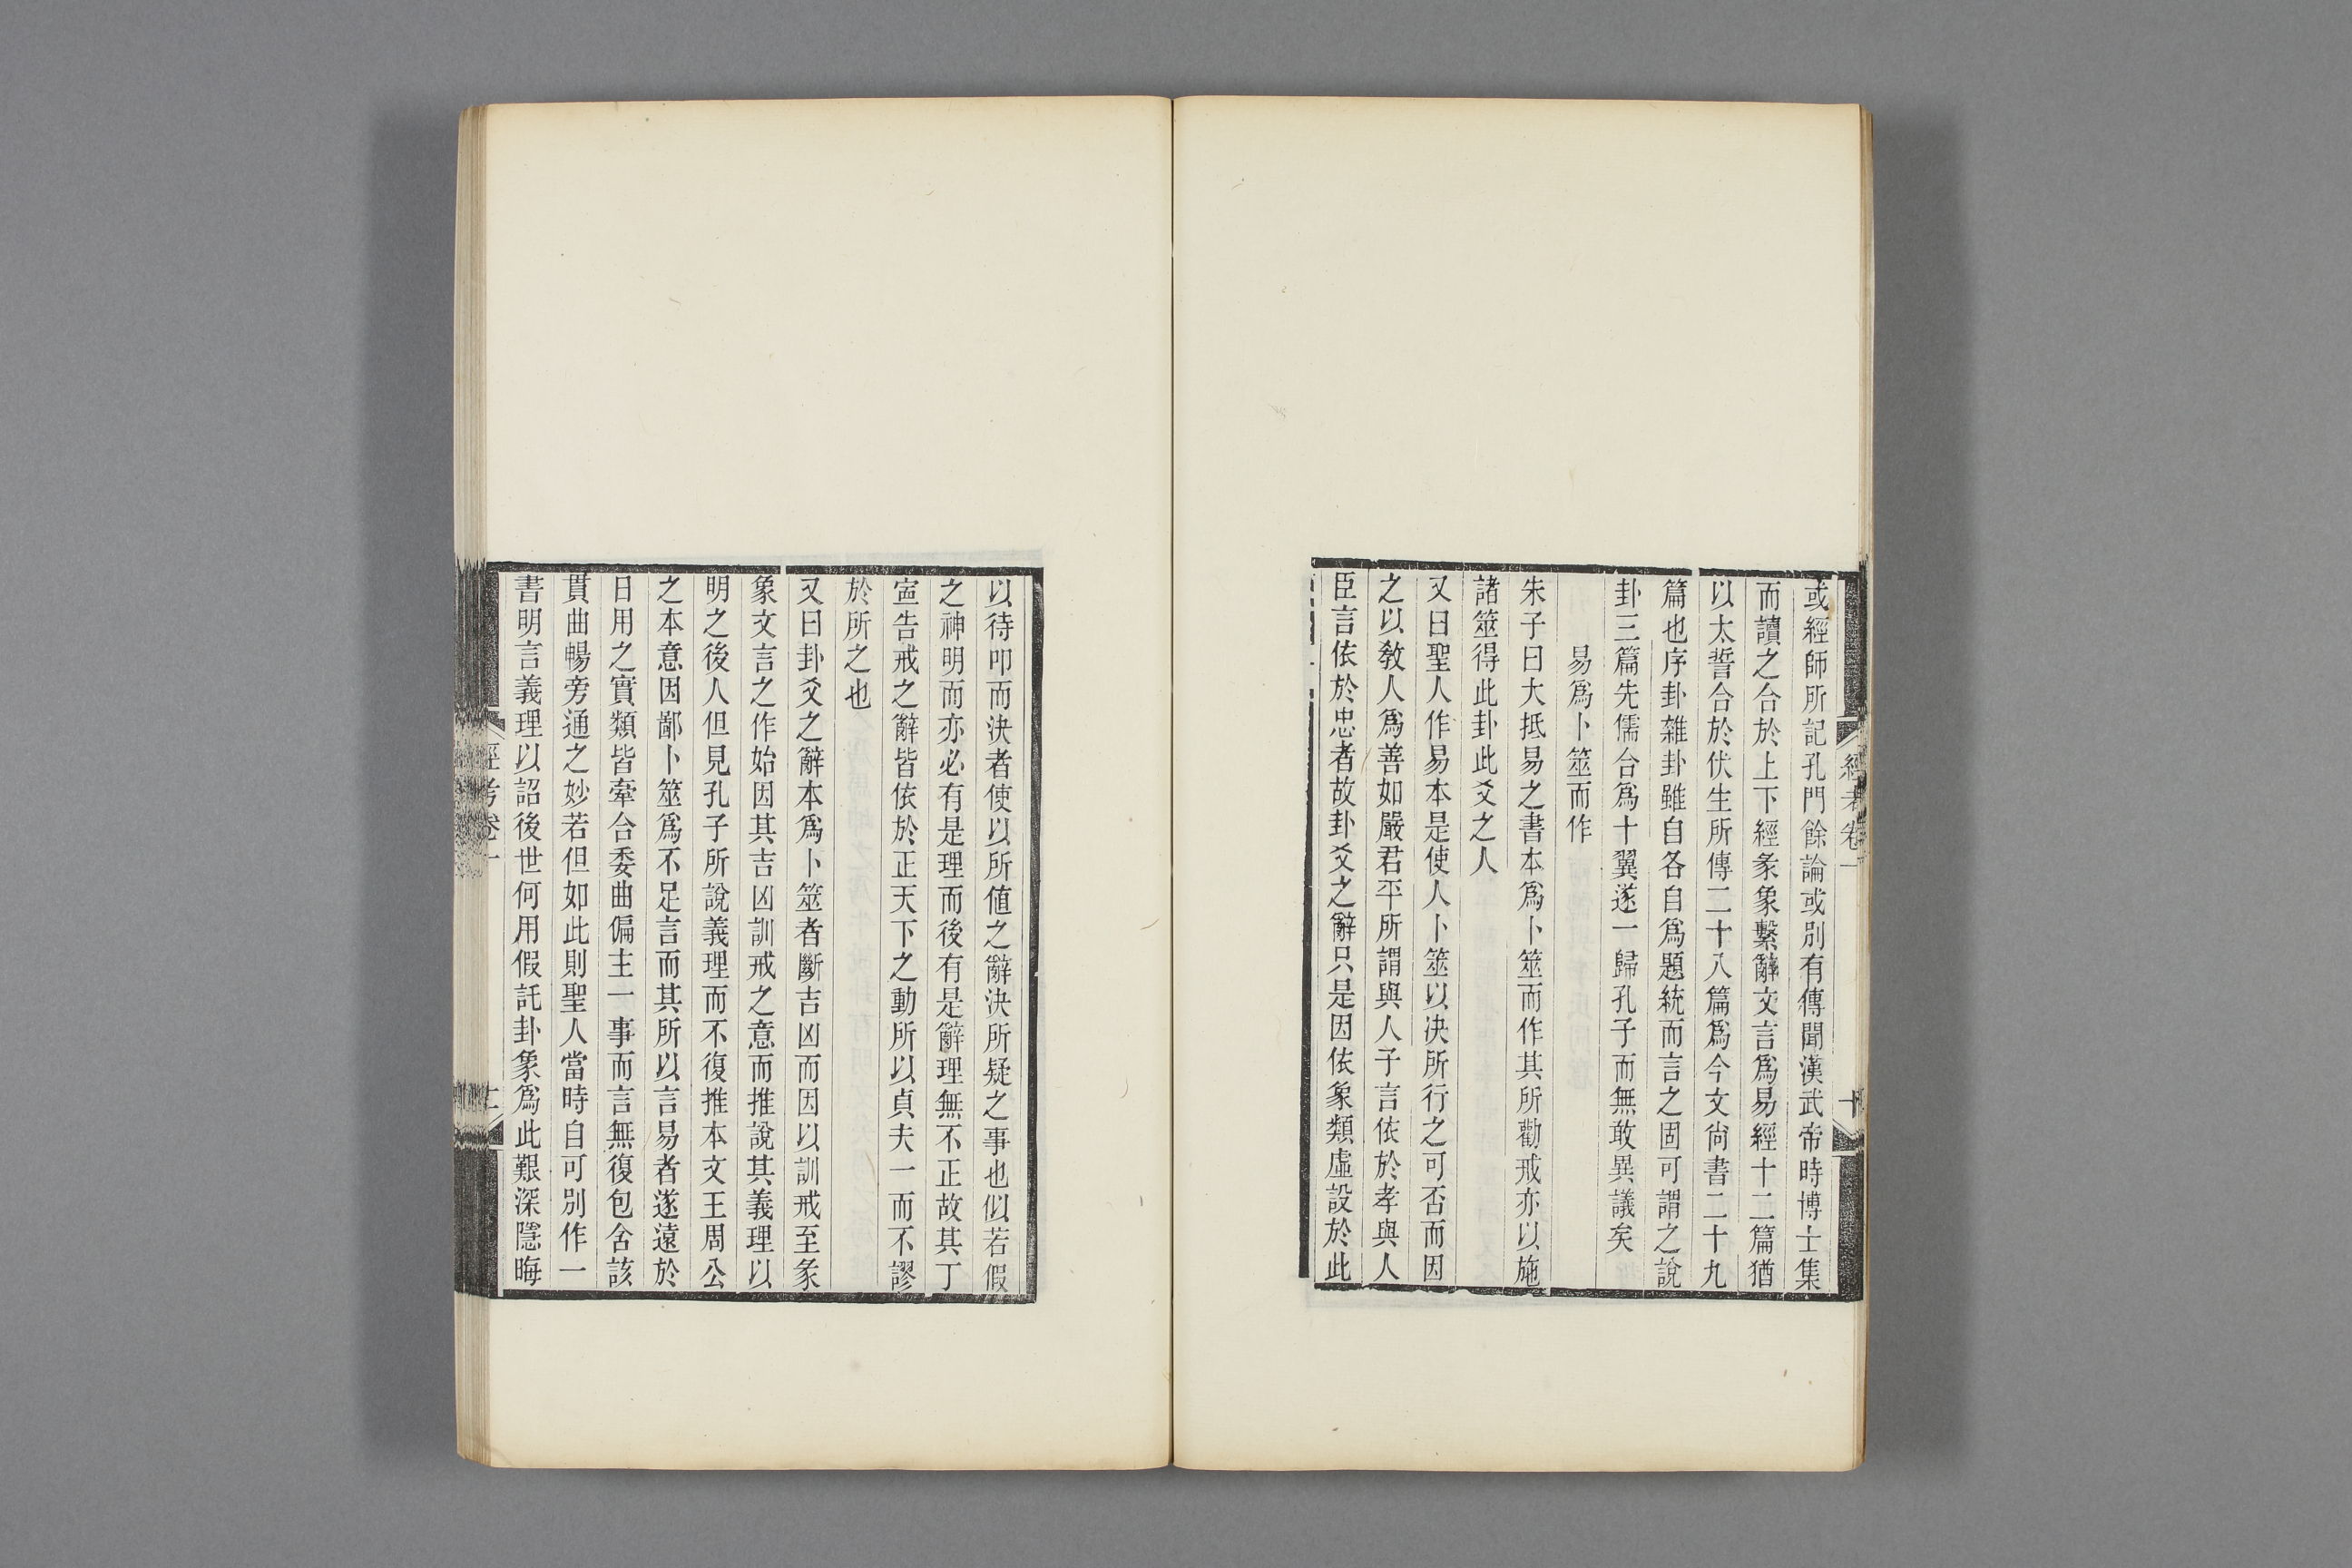 經考卷一
十
或經師所記孔門餘論或別有傳聞漢武帝時博士集
而讀之合於上下經彖象繫辭文言爲易經十二篇猶
以太誓合於伏生所傳二十八篇爲今文尙書二十九
篇也序卦雜卦雖自各自爲題統而言之固可謂之說
卦三篇先儒合爲十翼遂一歸孔子而無敢異議矣
易爲卜筮而作
朱子曰大抵易之書本爲卜筮而作其所勸戒亦以施
諸筮得此卦此爻之人
又曰聖人作易本是使人卜筮以決所行之可否而因
之以敎人爲善如嚴君平所謂與人子言依於孝與人
臣言依於忠者故卦爻之辭只是因依象類虛設於此
以待叩而決者使以所値之辭決所疑之事也似若假
之神明而亦必有是理而後有是辭理無不正故其丁
寍告戒之辭皆依於正天下之動所以貞夫一而不謬
於所之也
又曰卦爻之辭本爲卜筮者斷吉凶而因以訓戒至彖
象文言之作始因其吉凶訓戒之意而推說其義理以
明之後人但見孔子所說義理而不復推本文王周公
之本意因鄙卜筮爲不足言而其所以言易者遂遠於
日用之實類皆牽合委曲偏主一事而言無復包含該
貫曲暢旁通之妙若但如此則聖人當時自可別作一
書明言義理以詔後世何用假託卦象爲此艱深隱晦
經考卷一